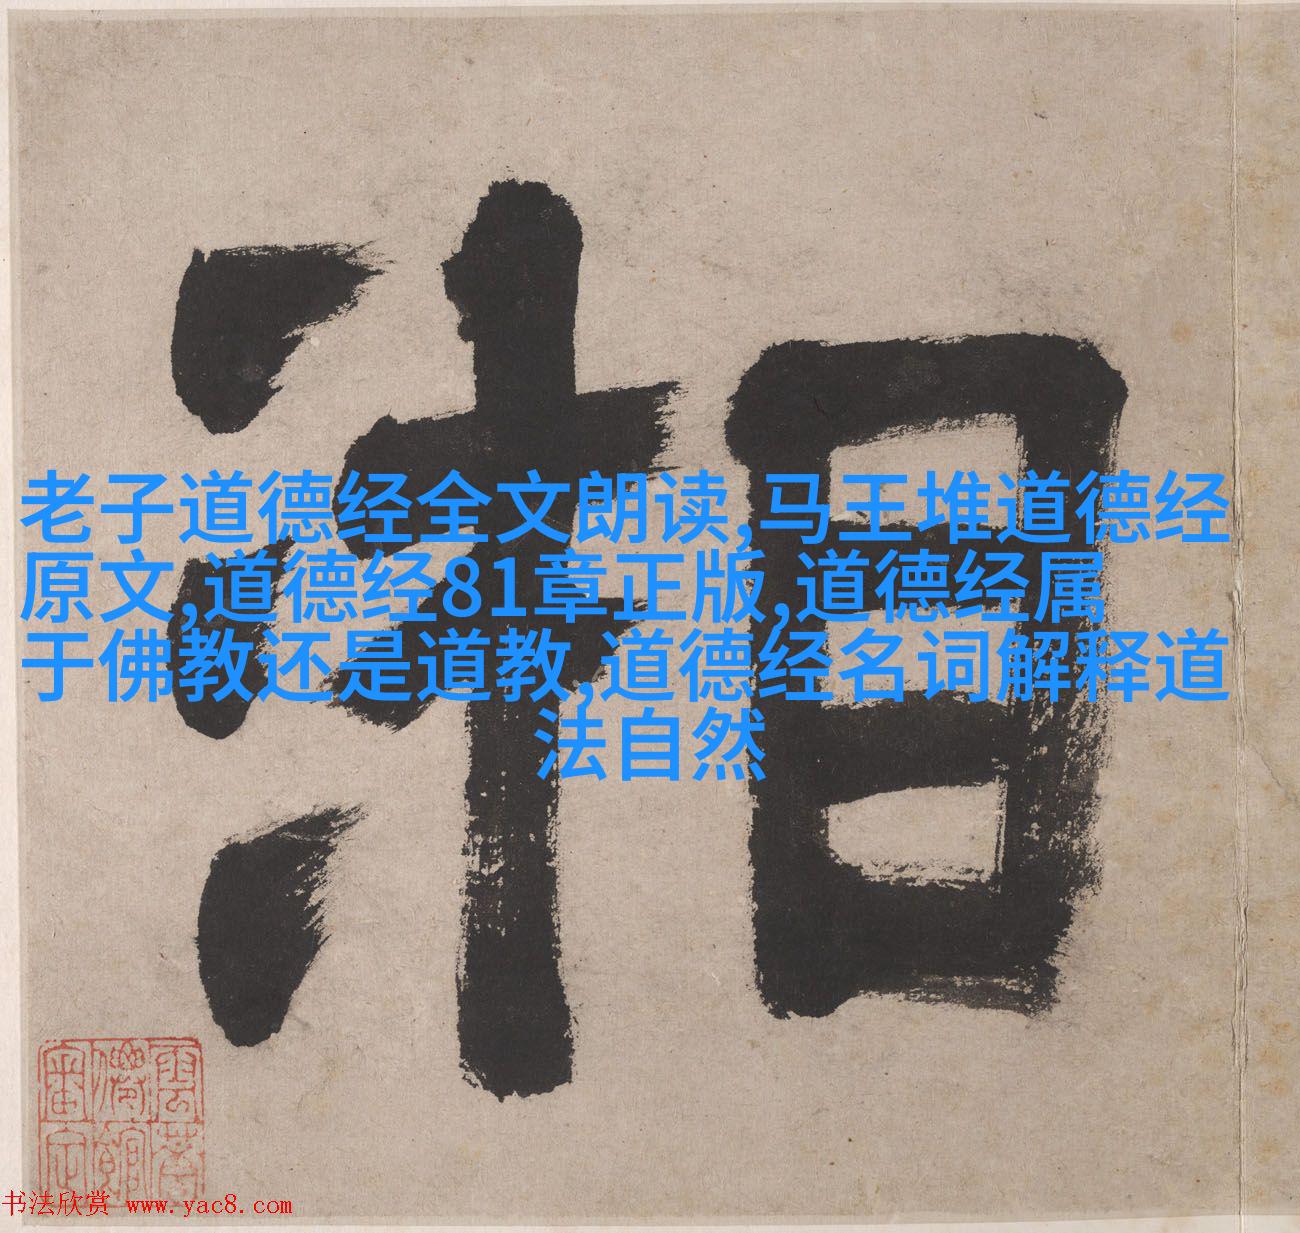 湘
老子道德经全文朗读,马王堆道德经
原文,道德经81章正版,道德经属
于佛教还是道教,道德经名词解释道
法自然
书法欣赏 www.yac8.com